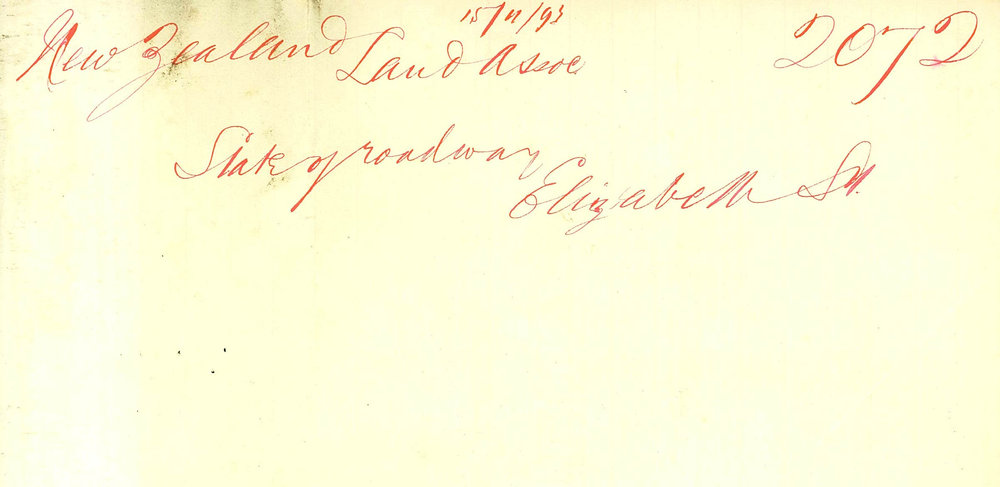 15/11/93
New Zealand Land Assoc 2072
State of roadway
Elizabeth St.